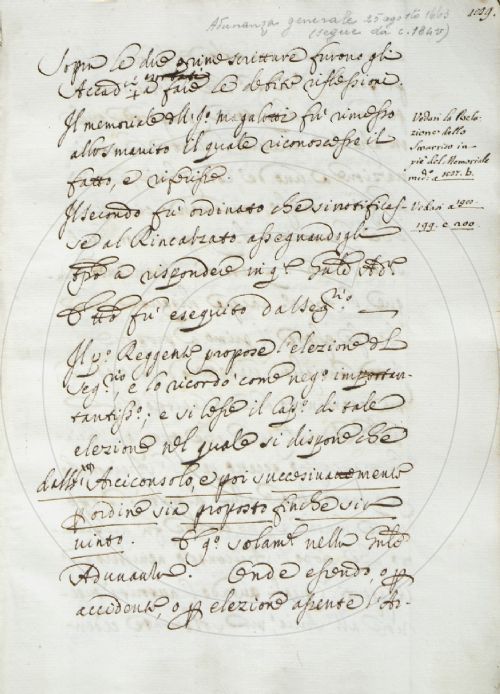 Adunanza generale 25 agosto 1663
(segue da c. 184v)
Sopra le due prime scritture furono gli
Accad.ci a fare le debite riflessioni.
Il memoriale del S.r Magalotti fù rimesso
allo Smarrito il quale riconoscesse il
fatto, e riferisse.
Il secondo fù ordinato che si notificas-
se al Rincalzato assegnandogli
a rispondere in
E tto fù eseguito dal Seg.rio
Il Reggente propose l'elezione del
Seg.rio, e lo ricordò come neg.o importan-
tantiss.o; e si lesse il Cap.o di tale
elezione nel quale si dispone che
dall' Arciconsolo, e poi succesivamente
p ordine sia proposto finche sia
vinto. E q.o solam.te nelle
Adunanze. Onde essendo, o p
accidente, o p elezione assente l'Ar-
Vedasi la Rela-
zione dello
Smarrito in
piè del Memoriale
med.o a
Vedasi a
199. e 200